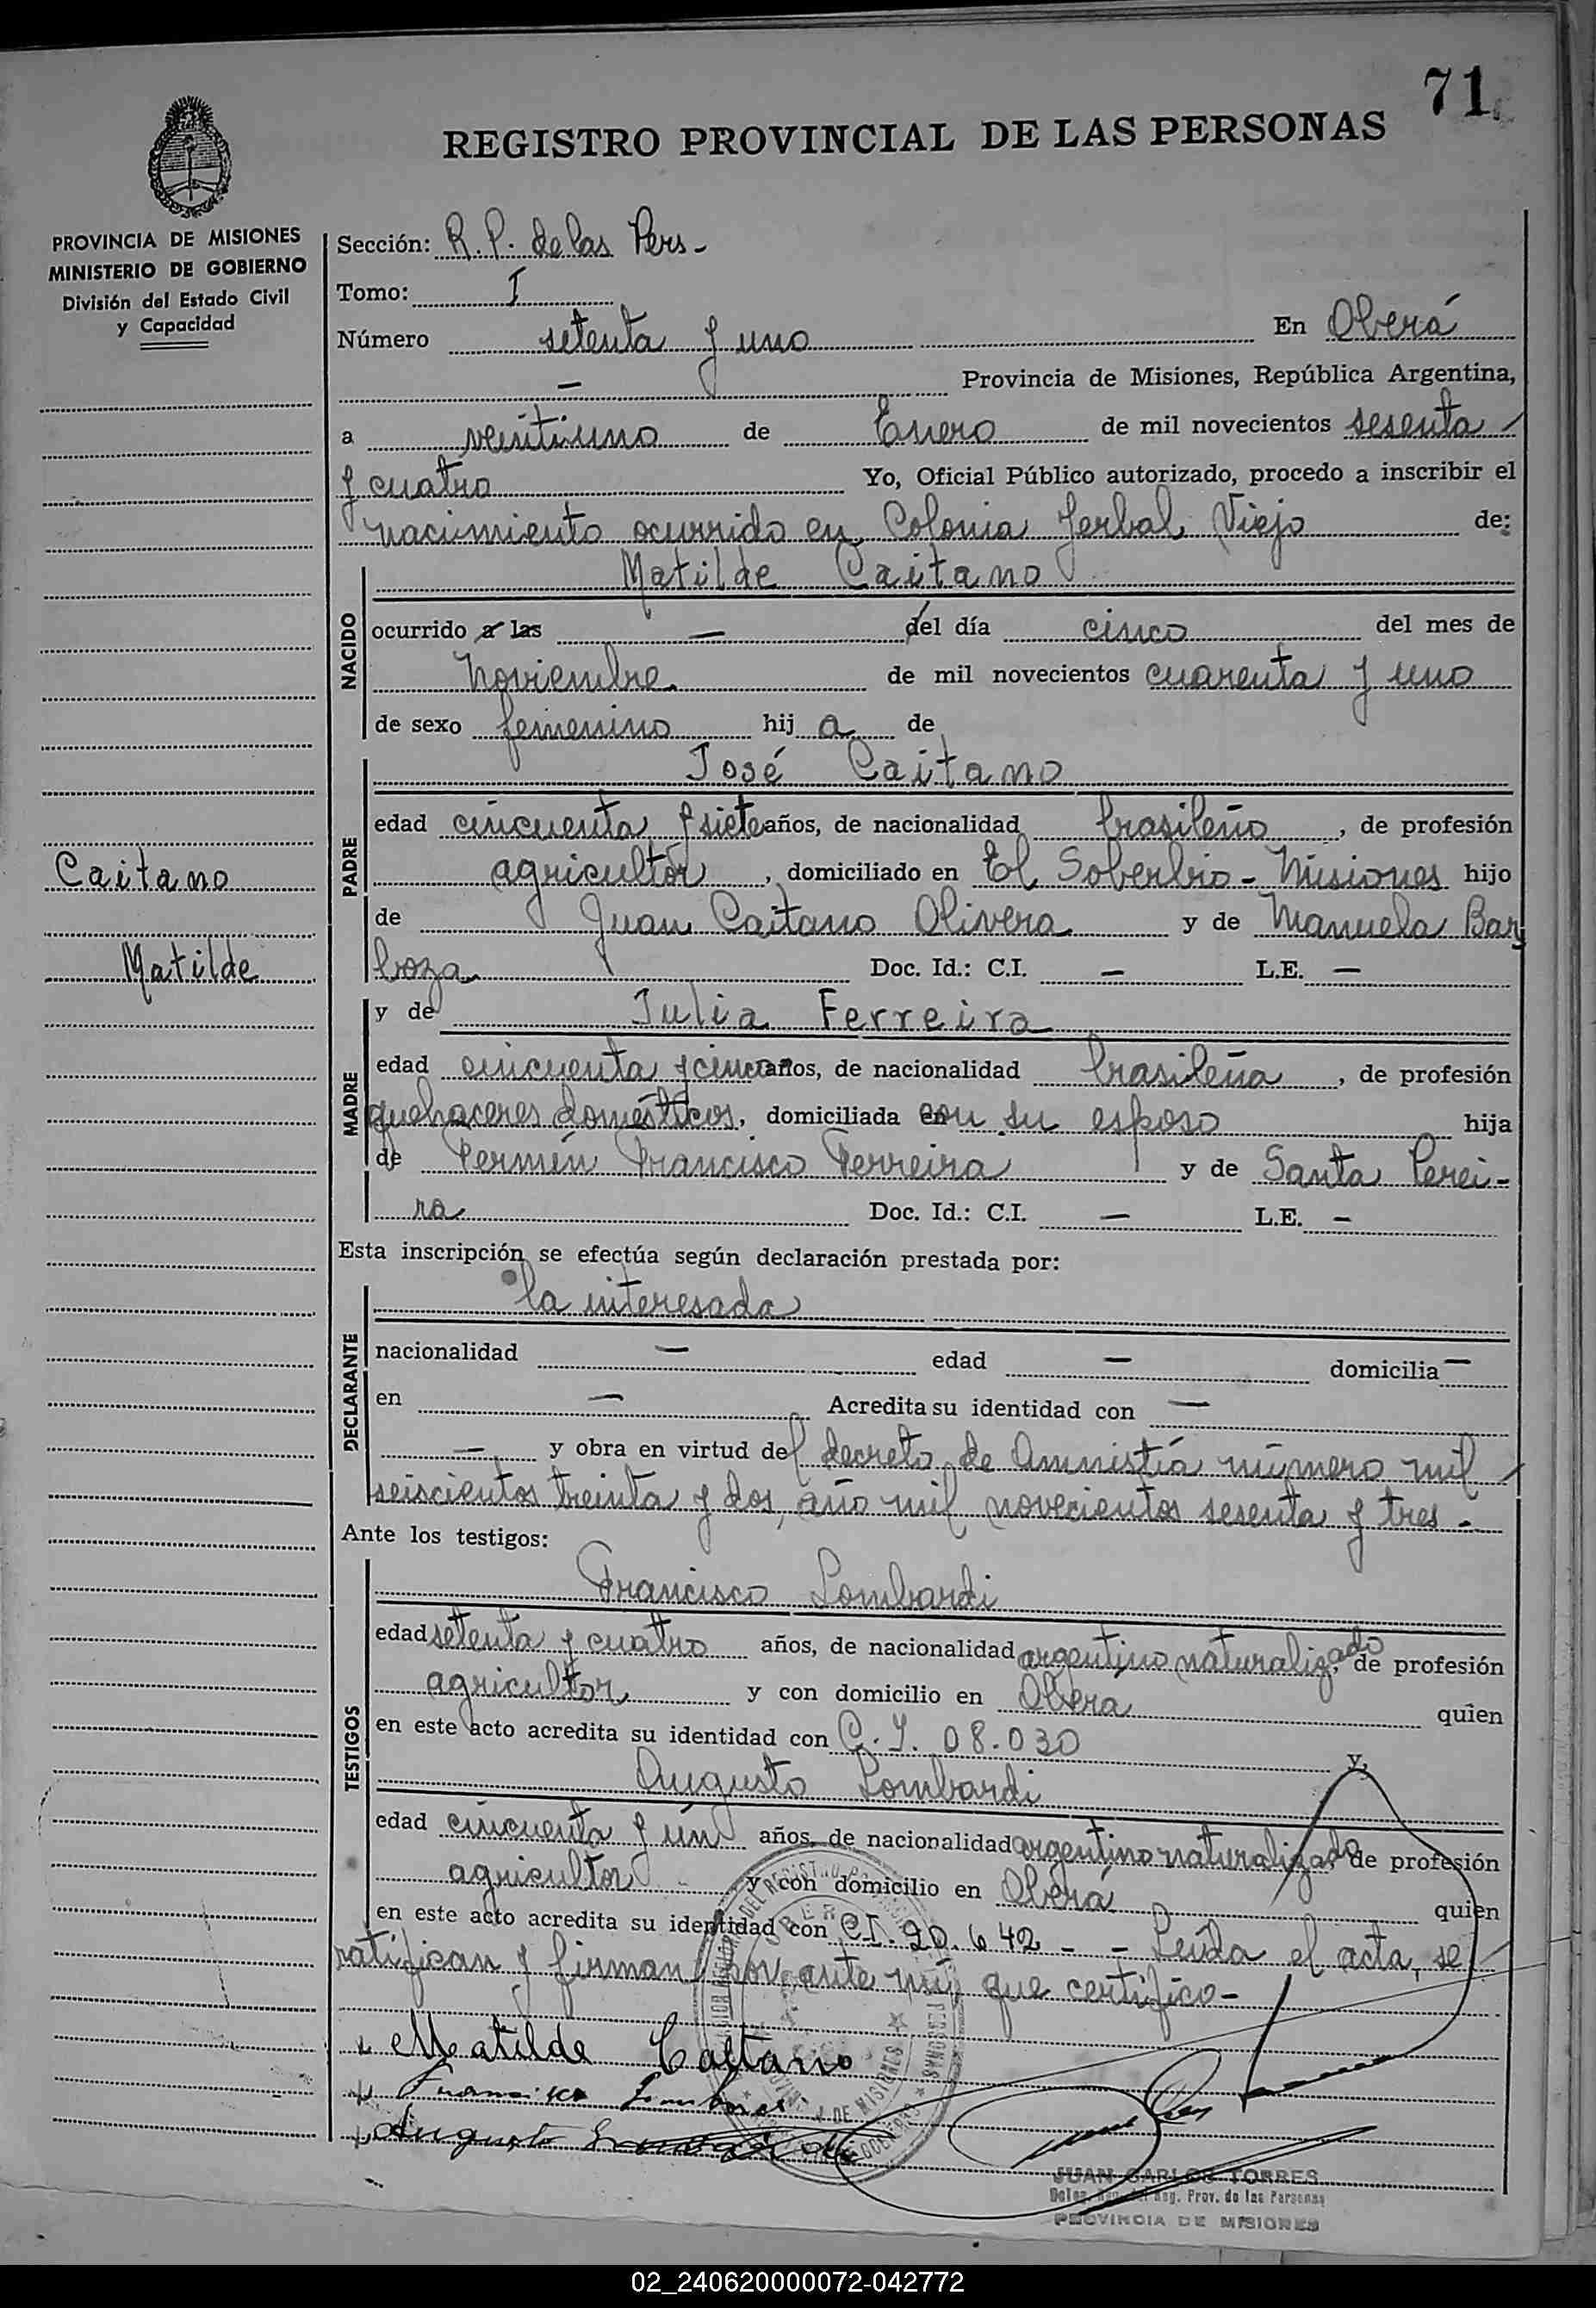 71
REGISTRO PROVINCIAL DE LAS PERSONAS
PROVINCIA DE MISIONES
MINISTERIO DE GOBIERNO
División del Estado Civil
y Capacidad
Sección: R. P. de las Pers -
Tomo: I
Número setenta y uno En Oberá
— Provincia de Misiones, República Argentina,
a veintiuno de Enero de mil novecientos sesenta
y cuatro Yo, Oficial Público autorizado, procedo a inscribir el
nacimiento ocurrido en Colonia Yerbal Viejo de:
NACIDO
Matilde Caitano
ocurrido a las — del día cinco del mes de
Noviembre de mil novecientos cuarenta y uno
de sexo femenino hij a de
PADRE
José Caitano
edad cincuenta y siete años, de nacionalidad brasileño, de profesión
agricultor, domiciliado en El Soberbio - Misiones hijo
de Juan Caitano Olivera y de Manuela Bar
boza Doc. Id.: C.I. — L.E. —
Caitano
Matilde
MADRE
y de Julia Ferreira
edad cincuenta y cinco años, de nacionalidad brasileña, de profesión
quehaceres domésticos, domiciliada con su esposo hija
de Fermín Francisco Ferreira y de Santa Perei-
ra Doc. Id.: C.I. — L.E. —
Esta inscripción se efectúa según declaración prestada por:
DECLARANTE
la interesada
nacionalidad — edad — domicilia —
en — Acredita su identidad con —
— y obra en virtud del decreto de Amnistía número mil
seiscientos treinta y dos, año mil novecientos sesenta y tres -
Ante los testigos:
TESTIGOS
Francisco Lombardi
edad setenta y cuatro años, de nacionalidad argentino naturalizado, de profesión
agricultor y con domicilio en Oberá quien
en este acto acredita su identidad con C.I. 08.030
y,
Augusto Lombardi
edad cincuenta y un años, de nacionalidad argentino naturalizado de profesión
agricultor y con domicilio en Oberá quien
en este acto acredita su identidad con C.I. 20.642 - - Leída el acta, se
ratifican y firman por ante mí que certifico -
Matilde Caitano
Francisco Lombardi
Augusto
JUAN CARLOS TORRES
Reg. Prov. de las Personas
PROVINCIA DE MISIONES
02_240620000072-042772